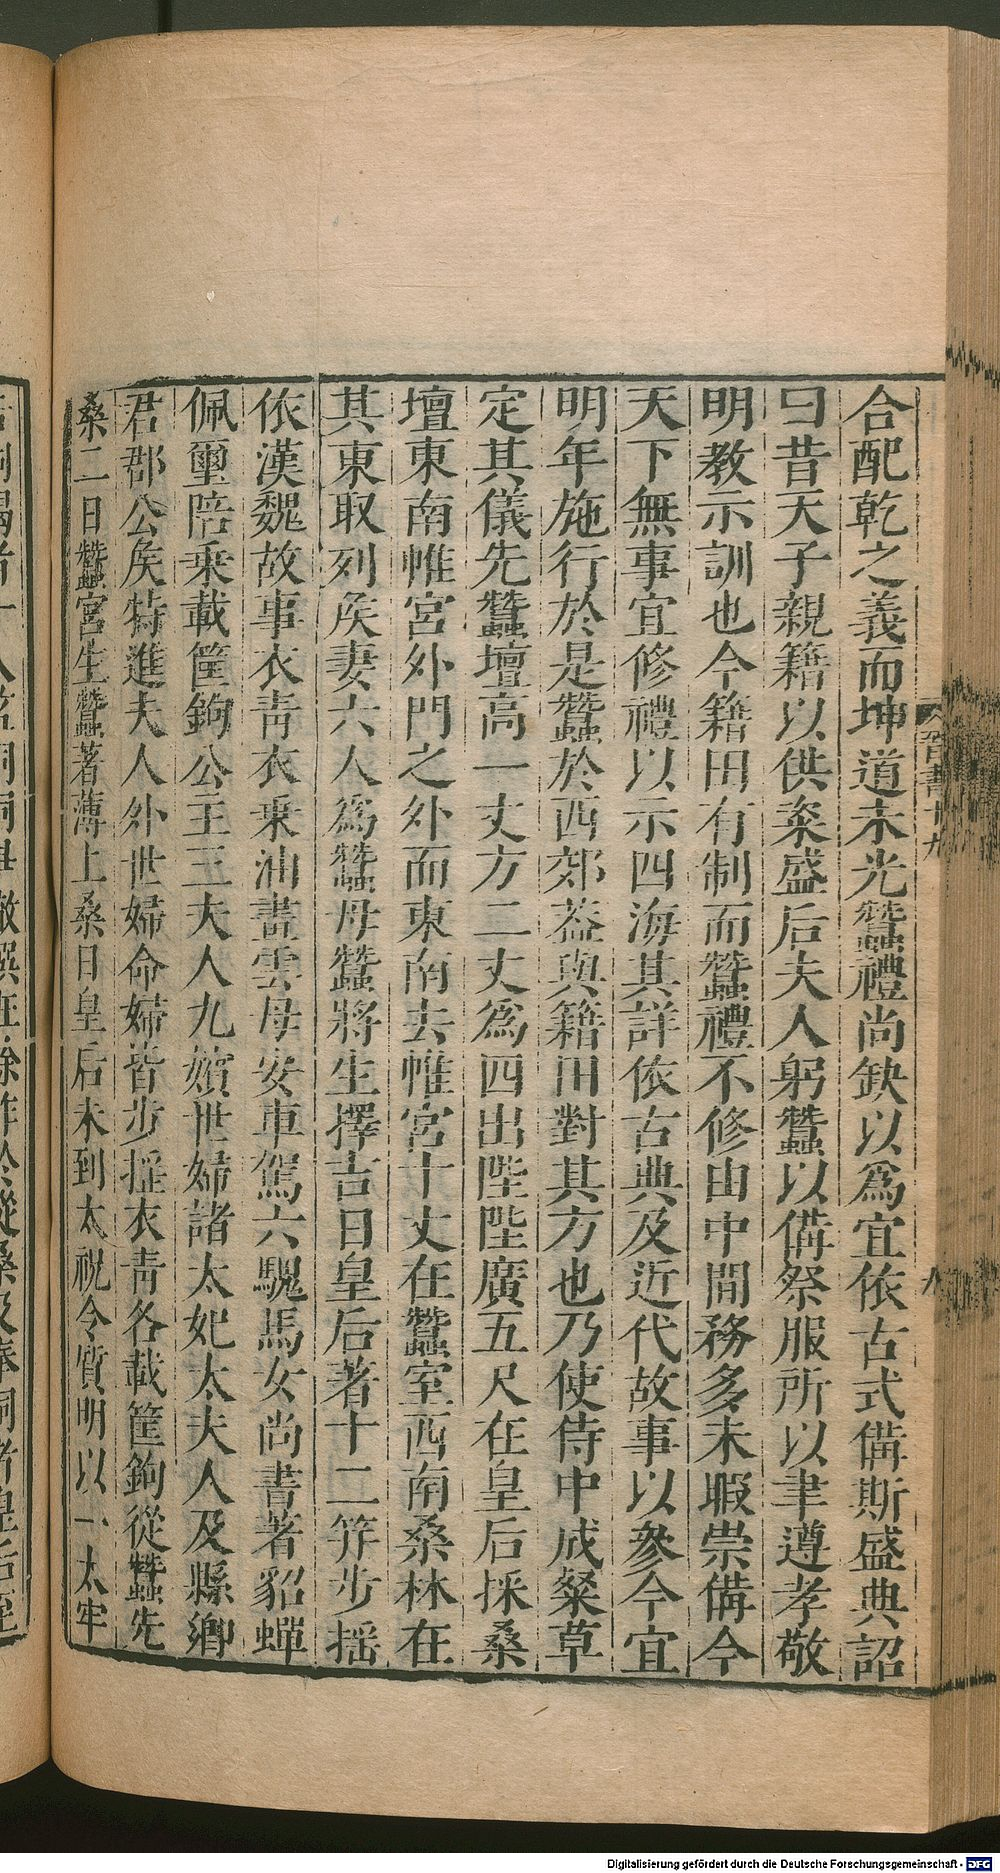 合配乾之義而坤道未光蠶禮尚缺以爲宜依古式備斯盛典詔
曰昔天子親籍以供粢盛后夫人躬蠶以備祭服所以聿遵孝敬
明教示訓也今籍田有制而蠶禮不修由中間務多未暇崇備今
天下無事宜修禮以示四海其詳依古典及近代故事以參今宜
明年施行於是蠶於西郊蓋與籍田對其方也乃使侍中成粲草
定其儀先蠶壇高一丈方二丈爲四出陛陛廣五尺在皇后採桑
壇東南帷宮外門之外而東南去帷宮十丈在蠶室西南桑林在
其東取列侯妻六人爲蠶母蠶將生擇吉日皇后著十二笄步摇
依漢魏故事衣青衣乘油畫雲母安車駕六騩馬女尚書著貂蟬
佩璽陪乘載筐鉤公王三夫人九嬪世婦諸太妃太夫人及縣鄉
君郡公侯特進夫人外世婦命婦皆步摇衣青各載筐鉤從蠶先
桑二日蠶宮生蠶著薄上桑日皇后未到太祝令質明以一太牢
晉書十九
八
Digitalisierung gefördert durch die Deutsche Forschungsgemeinschaft - DFG